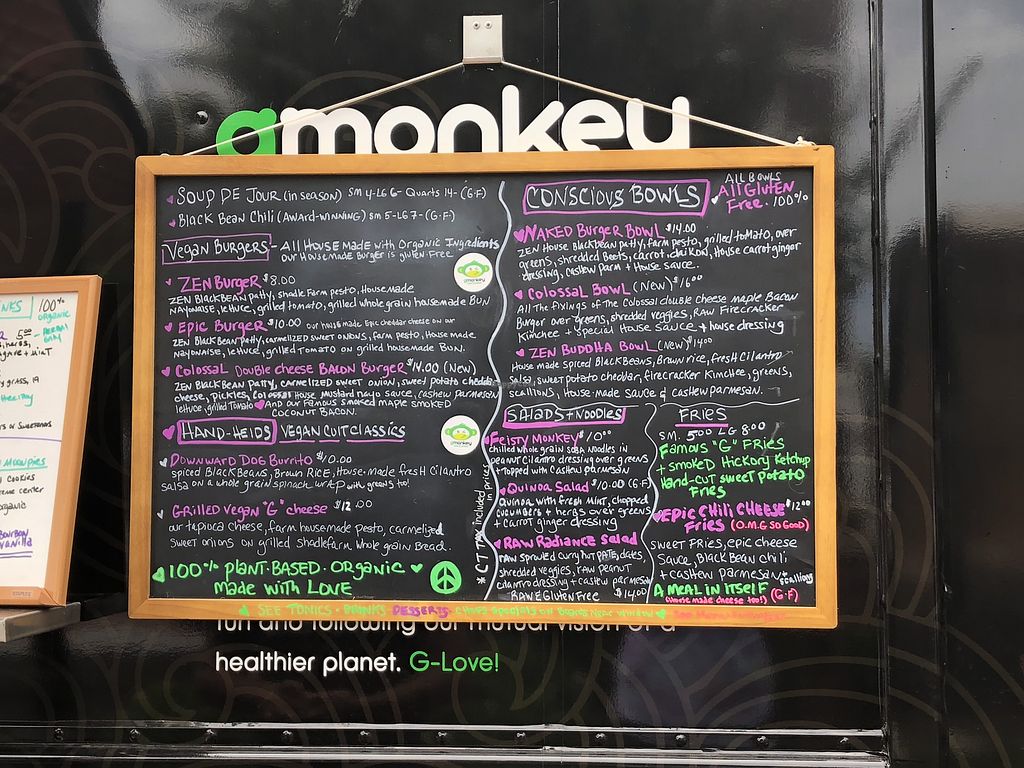 gmonkey
SOUP DE JOUR (in season) SM 4- LG 6- Quarts 14- (G·F)
BLACK BEAN CHILI (AWARD-WINNING) SM 5- LG 7- (G·F)
VEGAN BURGERS - ALL HOUSE MADE WITH ORGANIC INGREDIENTS
our Housemade Burger is gluten-Free
ZEN BURGER $8.00
ZEN BLACKBEAN Patty, Shadle Farm pesto, Housemade
Nayonaise, lettuce, grilled tomato, grilled whole grain housemade BUN
EPIC BURGER $10.00 our house made Epic cheddar cheese on our
ZEN BLACK BEAN Patty, carmelized sweet onions, farm pesto, House made
Nayonnaise, lettuce, grilled Tomato on grilled housemade BUN.
COLOSSAL Double cheese BACON BURGER $14.00 (NEW)
ZEN BlackBean Patty, carmelized sweet onion, sweet potato chedda
cheese, pickles, Colossal House Mustard nayo sauce, cashew parmesan
lettuce, grilled Tomato And our Famous smoked maple smoked
COCONUT BACON.
HAND-HELDS VEGAN CULT CLASSICS
DOWNWARD DOG Burrito $10.00
spiced Black Beans, Brown Rice, House-made fresh Cilantro
salsa on a whole grain spinach wrap with greens too!
GRILLED VEGAN "G" cheese $12.00
our tapioca cheese, farm housemade pesto, carmelized
sweet onions on grilled Shadlefarm whole grain Bread.
100% PLANT-BASED-ORGANIC
made with LOVE
* CT TAX included in prices
CONSCIOUS BOWLS
ALL BOWLS
All GLUTEN
Free 100%
NAKED BURGER BOWL $14.00
ZEN House Blackbean patty, farm pesto, grilled tomato, over
greens, shredded Beets, carrot, daikon, House carrot ginger
dressing, cashew parm + House sauce.
COLOSSAL BOWL (NEW) $16.00
All The fixings of The Colossal double cheese maple Bacon
Burger over greens, shredded veggies, RAW Firecracker
Kimchee + Special House Sauce + house dressing
ZEN BUDDHA BOWL (NEW) $14.00
House made spiced Blackbeans, Brown rice, fresh Cilantro
salsa, sweet potato cheddar, firecracker Kimchee, greens,
scallions, House-made sauce & Cashew parmesan.
SALADS + NOODLES
FEISTY MONKEY $10.00
chilled whole grain SOBA Noodles in
peanut Cilantro dressing over greens
+ topped with Cashew parmesan
QUINOA SALAD $10.00 (G·F)
Quinoa with fresh mint, chopped
cucumbers + herbs over greens
+ carrot ginger dressing
RAW RADIANCE SALAD
raw sprouted curry nut pate, dates
shredded veggies, raw peanut
cilantro dressing + cashew parmesan
RAW & Gluten Free $14.00
FRIES
SM. 5.00 LG 8.00
Famous "G" Fries
+ smoked Hickory Ketchup
Hand-cut sweet potato
Fries
EPIC CHILI CHEESE $12.00
Fries (O.M.G SO GOOD)
sweet Fries, epic cheese
Sauce, Black Bean chili
+ cashew parmesan + scallions
A MEAL IN ITSELF (G·F)
(House made cheese too!)
SEE TONICS - DRINKS - DESSERTS - CHEFS specials on Boards near window
fun and following our mutual vision of a
healthier planet. G-Love!
100%
ORGANIC
MOONPIES
Cookies
BOURBON
Vanilla